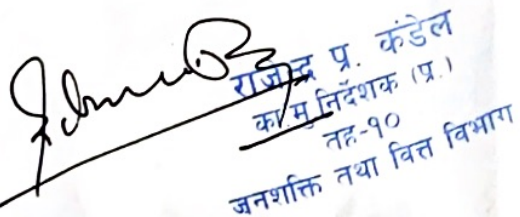 राजेन्द्र प्र. कंडेल
का.मु निर्देशक (प्र.)
तह-१०
जनशक्ति तथा वित्त विभाग